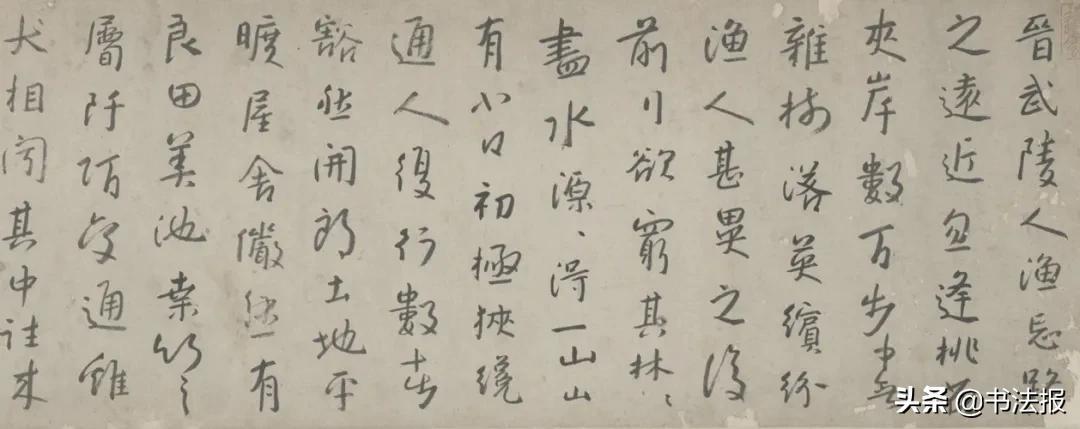 晉武陵人漁忘路
之遠近忽逢桃
夾岸數百步中無
雜樹落英繽紛
漁人甚異之復
前行欲窮其林〻
盡水源〻得一山山
有小口初極狹纔
通人復行數十步
豁然開朗土地平
曠屋舍儼然有
良田美池桑竹之
屬阡陌交通雞
犬相聞其中往來
头条 @书法报